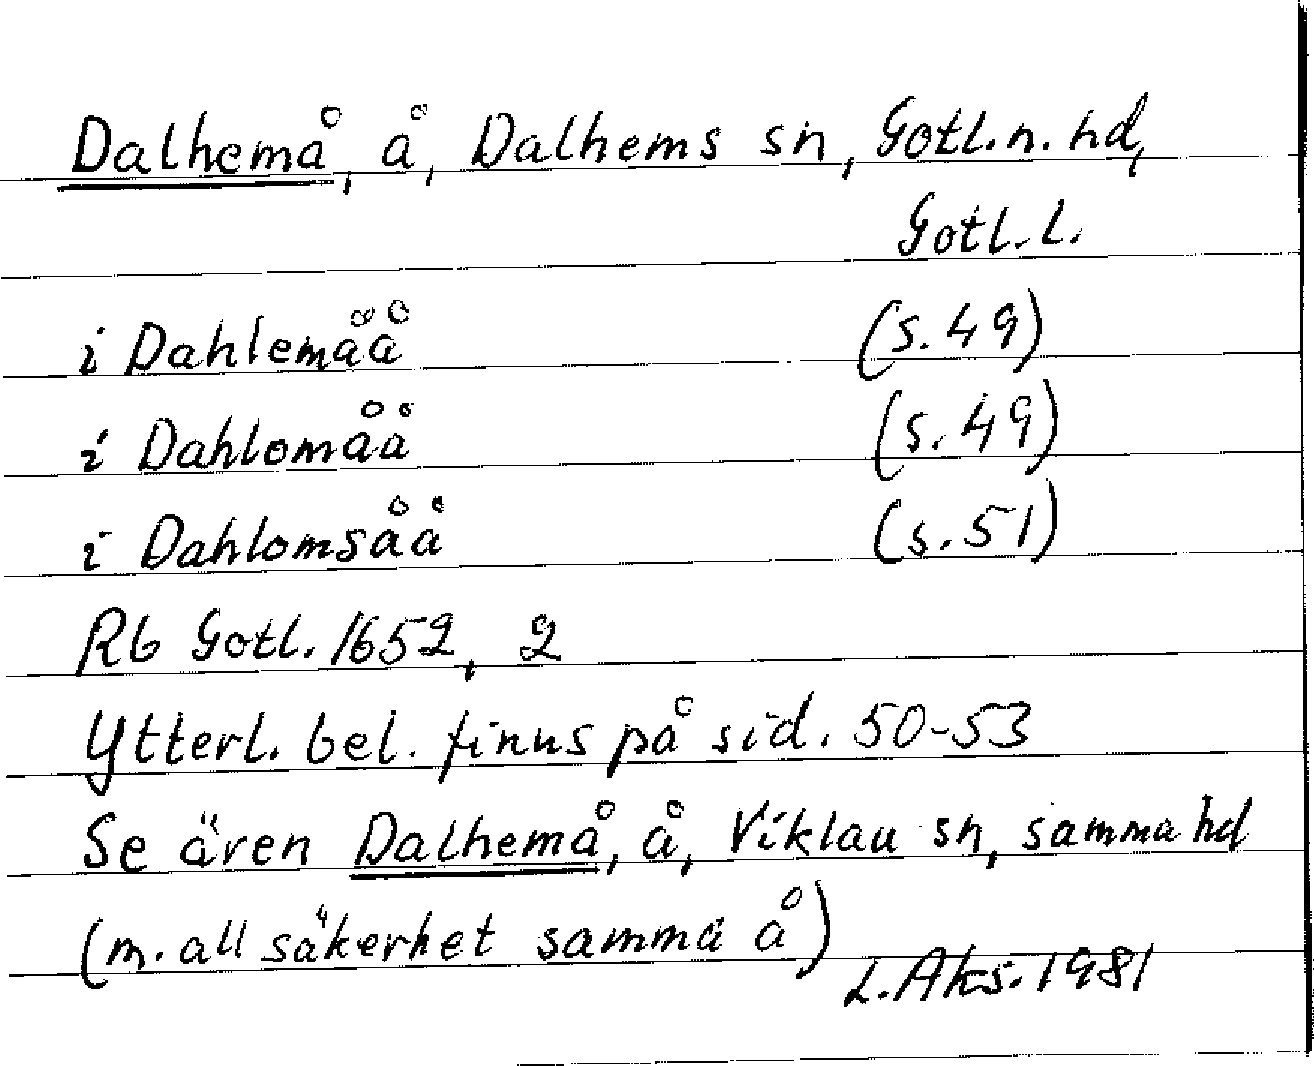 Dalhemå, å, Dalhems sn, Gotl. n. hd,
Gotl. l.
i Dahlemåå (s. 49)
i Dahlomåå (s. 49)
i Dahlomsåå (s. 51)
Rb Gotl. 1652, 2
Ytterl. bel. finns på sid. 50-53
Se även Dalhemå, å, Viklau sn, samma hd
(m. all säkerhet samma å)
L. Aks. 1981